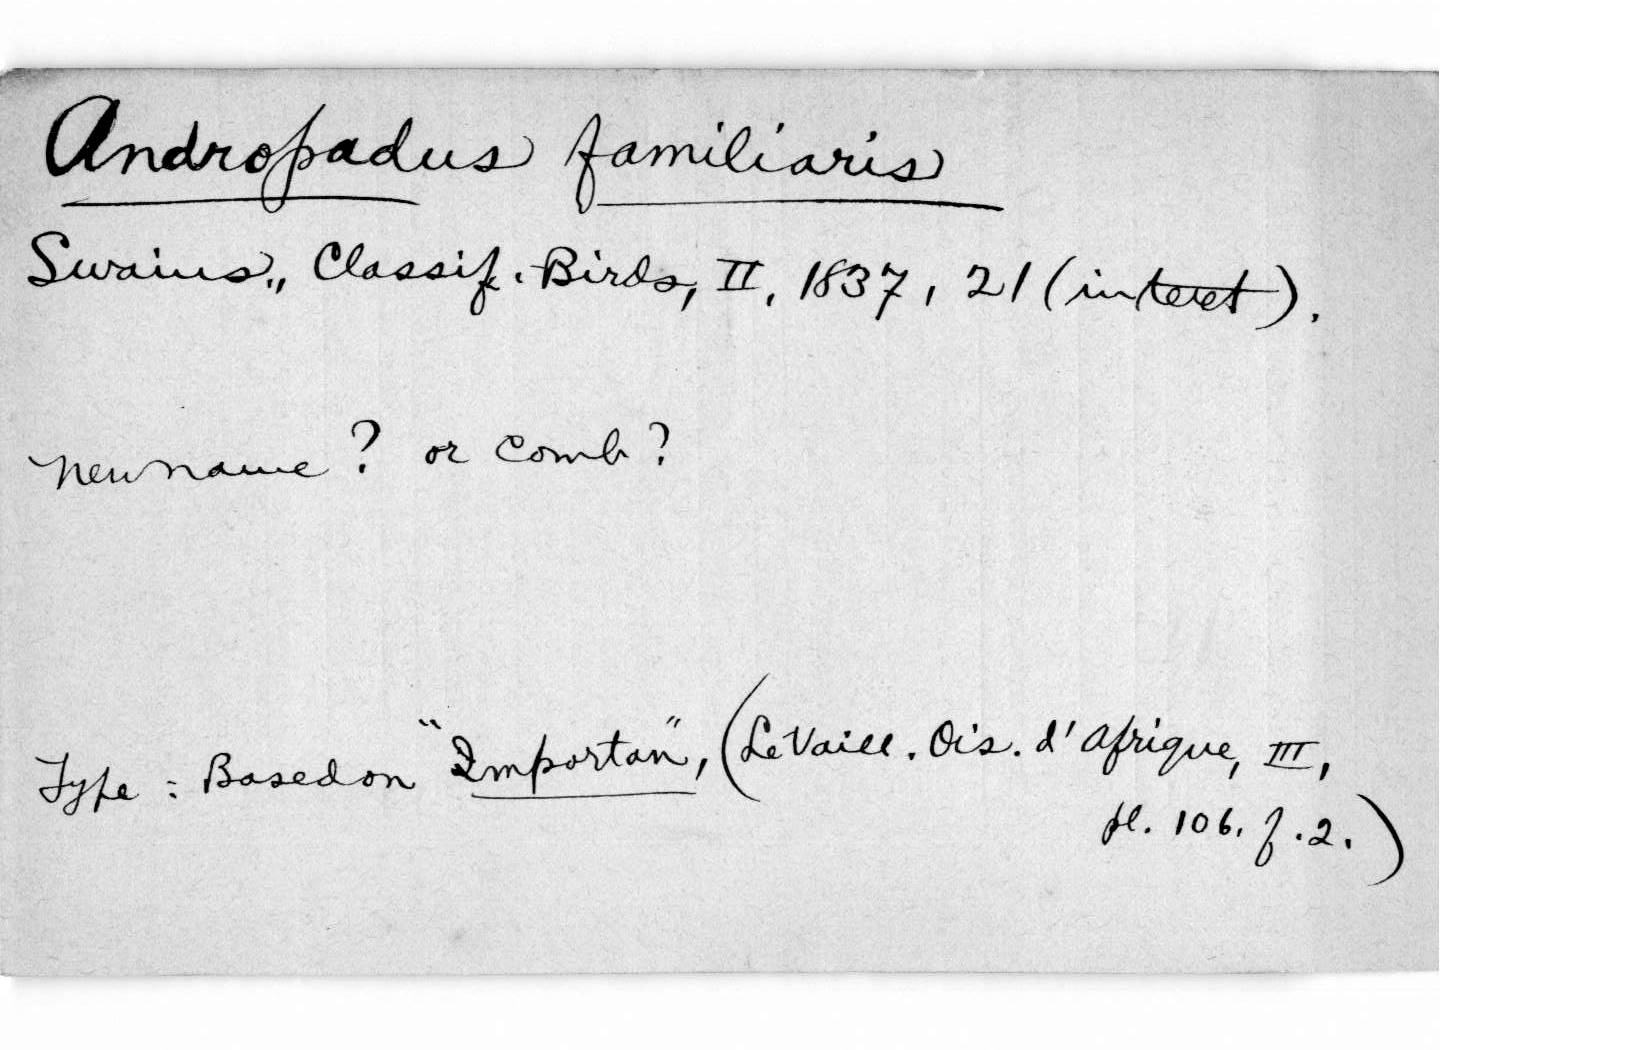 Andropadus familiaris
Swains., Classif. Birds, II, 1837, 21 (in text).
New name? or comb?
Type: Based on "Importan", (Le Vaill. Ois. d'Afrique, III,
pl. 106. f. 2.)